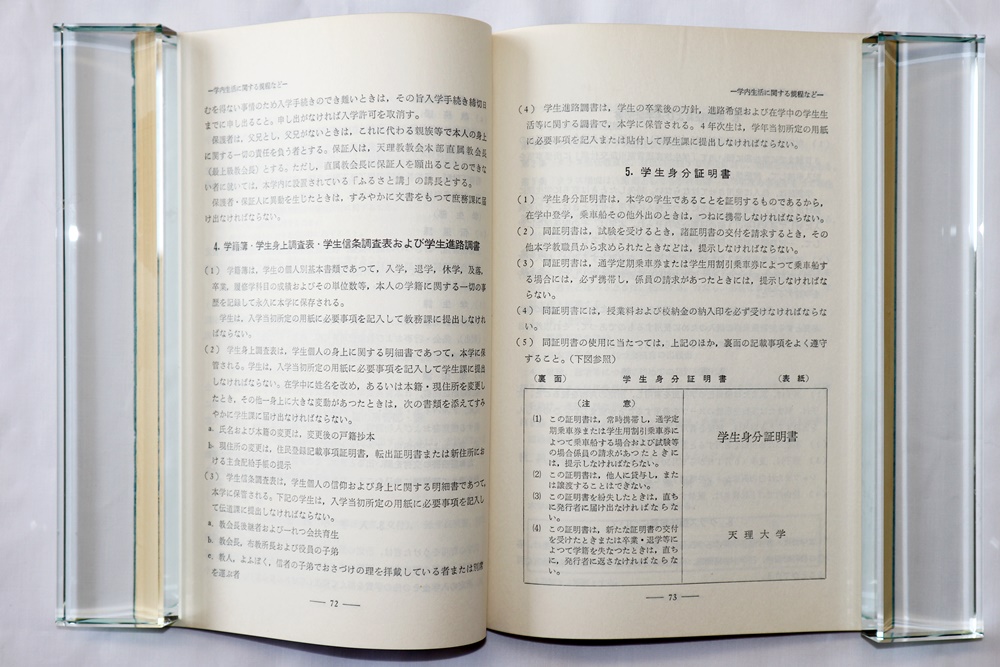 ―学内生活に関する規程など―
むを得ない事情のため入学手続きのでき難いときは，その旨入学手続き締切日
までに申し出ること。申し出がなければ入学許可を取消す。
保護者は，父兄とし，父兄がないときは，これに代わる親族等で本人の身上
に関する一切の責任を負う者とする。保証人は，天理教教会本部直属教会長
（最上級教会長）とする。ただし，直属教会長に保証人を願出ることのできな
い者に就いては，本学内に設置されている「ふるさと講」の講長とする。
保護者・保証人に異動を生じたときは，すみやかに文書をもつて庶務課に届
け出なければならない。
4. 学籍簿・学生身上調査表・学生信条調査表および学生進路調書
（1） 学籍簿は，学生の個人別基本書類であつて，入学，退学，休学，及落，
卒業，履修学科目の成績およびその単位数等，本人の学籍に関する一切の事
歴を記録して永久に本学に保存される。
学生は，入学当初所定の用紙に必要事項を記入して教務課に提出しなけれ
ばならない。
（2） 学生身上調査表は，学生個人の身上に関する明細書であつて，本学に保
管される。学生は，入学当初所定の用紙に必要事項を記入して学生課に提出
しなければならない。在学中に姓名を改め，あるいは本籍・現住所を変更し
たとき，その他一身上に大きな変動があつたときは，次の書類を添えてすみ
やかに学生課に届け出なければならない。
a. 氏名および本籍の変更は，変更後の戸籍抄本
b. 現住所の変更は，住民登録記載事項証明書，転出証明書または新住所にお
ける主食配給手帳の提示
（3） 学生信条調査表は，学生個人の信仰および身上に関する明細書であつて，
本学に保管される。下記の学生は，入学当初所定の用紙に必要事項を記入し
て伝道課に提出しなければならない。
a. 教会長後継者および一れつ会扶育生
b. 教会長，布教所長および役員の子弟
c. 教人，よふぼく，信者の子弟でおさづけの理を拝戴している者または別席
を運ぶ者
― 72 ―
―学内生活に関する規程など―
（4） 学生進路調書は，学生の卒業後の方針，進路希望および在学中の学生生
活等に関する調書で，本学に保管される。4年次生は，学年当初所定の用紙
に必要事項を記入または貼付して厚生課に提出しなければならない。
5. 学生身分証明書
（1） 学生身分証明書は，本学の学生であることを証明するものであるから，
在学中登学，乗車船その他外出のときは，つねに携帯しなければならない。
（2） 同証明書は，試験を受けるとき，諸証明書の交付を請求するとき，その
他本学教職員から求められたときなどは，提示しなければならない。
（3） 同証明書は，通学定期乗車券または学生用割引乗車券によつて乗車船す
る場合には，必ず携帯し，係員の請求があつたときには，提示しなければな
らない。
（4） 同証明書には，授業料および校納金の納入印を必ず受けなければならな
い。
（5） 同証明書の使用に当たつては，上記のほか，裏面の記載事項をよく遵守
すること。（下図参照）
（裏 面） 学 生 身 分 証 明 書 （表 紙）
（注 意）
(1) この証明書は，常時携帯し，通学定
期乗車券または学生用割引乗車券に
よつて乗車船する場合および試験等
の場合係員の請求があつたときに
は，提示しなければならない。
(2) この証明書は，他人に貸与し，また
は譲渡することはできない。
(3) この証明書を紛失したときは，直ち
に発行者に届け出なければならな
い。
(4) この証明書は，新たな証明書の交付
を受けたときまたは卒業・退学等に
よつて学籍を失なつたときは，直ち
に，発行者に返さなければならな
い。
学生身分証明書
天 理 大 学
― 73 ―